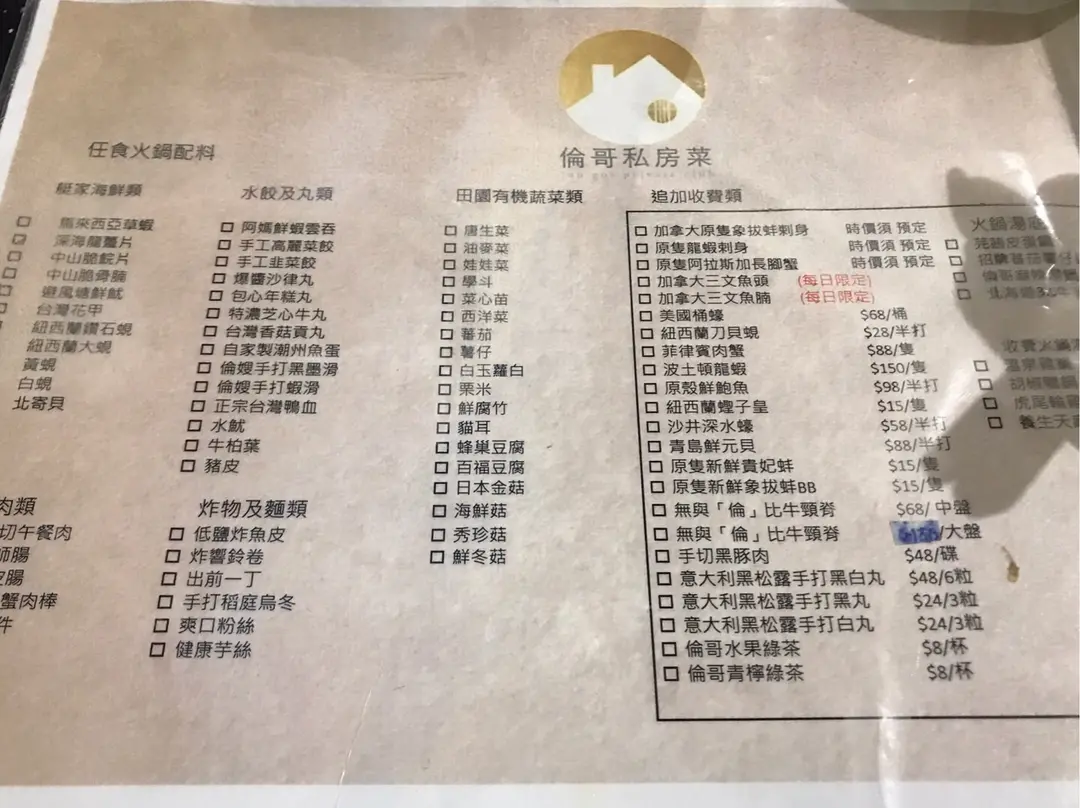 倫哥私房菜
任食火鍋配料
艇家海鮮類
馬來西亞草蝦
深海龍躉片
中山脆鯇片
中山脆骨腩
避風塘鮮魷
台灣花甲
紐西蘭鑽石蜆
紐西蘭大蜆
黃蜆
白蜆
北寄貝
肉類
切午餐肉
腸
腸
蟹肉棒
件
水餃及丸類
阿嫣鮮蝦雲吞
手工高麗菜餃
手工韭菜餃
爆醬沙律丸
包心年糕丸
特濃芝心牛丸
台灣香菇貢丸
自家製潮州魚蛋
倫嫂手打黑墨滑
倫嫂手打蝦滑
正宗台灣鴨血
水魷
牛柏葉
豬皮
炸物及麵類
低鹽炸魚皮
炸響鈴卷
出前一丁
手打稻庭烏冬
爽口粉絲
健康芋絲
田園有機蔬菜類
唐生菜
油麥菜
娃娃菜
學斗
菜心苗
西洋菜
蕃茄
薯仔
白玉蘿白
栗米
鮮腐竹
貓耳
蜂巢豆腐
百福豆腐
日本金菇
海鮮菇
秀珍菇
鮮冬菇
追加收費類
加拿大原隻象拔蚌剌身 時價須 預定
原隻龍蝦剌身 時價須 預定
原隻阿拉斯加長腳蟹 時價須 預定
加拿大三文魚頭 (每日限定)
加拿大三文魚腩 (每日限定)
美國桶蠔 $68/桶
紐西蘭刀貝蜆 $28/半打
菲律賓肉蟹 $88/隻
波士頓龍蝦 $150/隻
原殼鮮鮑魚 $98/半打
紐西蘭蟶子皇 $15/隻
沙井深水蠔 $58/半打
青島鮮元貝 $88/半打
原隻新鮮貴妃蚌 $15/隻
原隻新鮮象拔蚌BB $15/隻
無與「倫」比牛頸脊 $68/ 中盤
無與「倫」比牛頸脊 /大盤
手切黑豚肉 $48/碟
意大利黑松露手打黑白丸 $48/6粒
意大利黑松露手打黑丸 $24/3粒
意大利黑松露手打白丸 $24/3粒
倫哥水果綠茶 $8/杯
倫哥青檸綠茶 $8/杯
火鍋湯底
收費火鍋
胡椒豬
虎尾輪雞
養生天